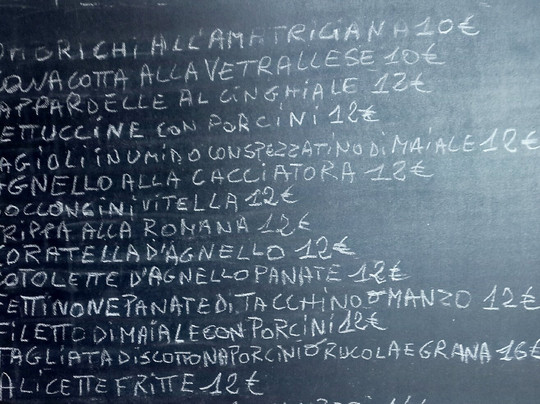 OMBRICHI ALL'AMATRICIANA 10€
COTTA ALLA VETRALLESE 10€
APPARDELLE AL CINGHIALE 12€
ETTUCCINE CON PORCINI 12€
AGIOLI IN UMIDO CON SPEZZATINO DI MAIALE 12€
AGNELLO ALLA CACCIATORA 12€
BOCCONCINI VITELLA 12€
TRIPPA ALLA ROMANA 12€
CORATELLA D'AGNELLO 12€
COTOLETTE D'AGNELLO PANATE 12€
FETTINONE PANATE DI TACCHINO O MANZO 12€
FILETTO DI MAIALE CON PORCINI 12€
TAGLIATA DI SCOTTONA PORCINI O RUCOLA E GRANA 16€
ALICETTE FRITTE 12€